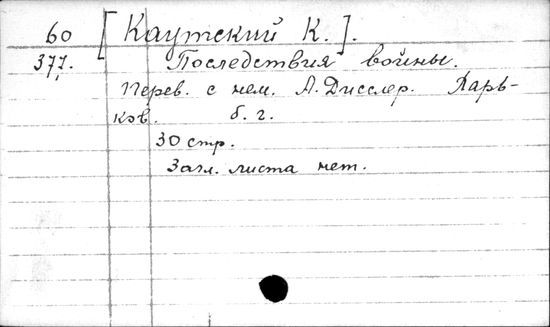 60 [Каутский К.].
377. Последствия войны.
Перев. с нем. А. Дисслер. Харь-
ков. б. г.
30 стр.
Загл. листа нет.